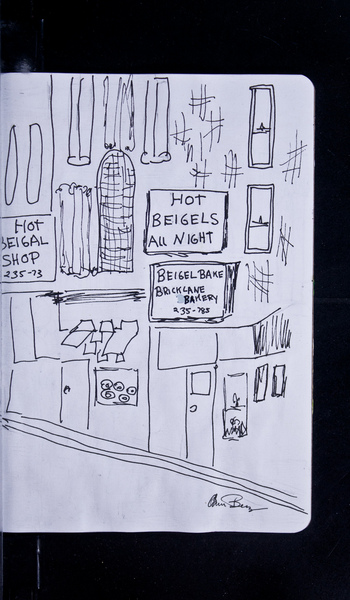 HOT
BEIGAL
SHOP
235-73
HOT
BEIGELS
ALL NIGHT
BEIGELBAKE
BRICKLANE
BAKERY
235-785